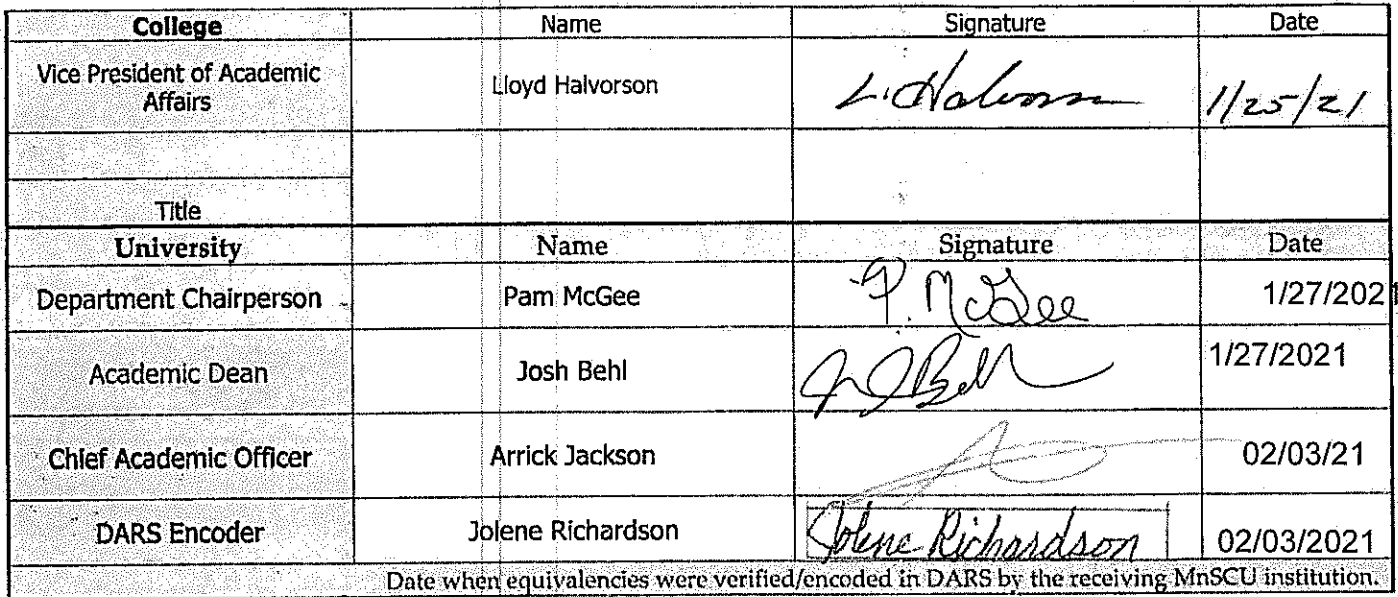 College Name Signature Date
Vice President of Academic
Affairs
Lloyd Halvorson L. Halvorson 1/25/21
Title
University Name Signature Date
Department Chairperson Pam McGee P. McGee 1/27/2021
Academic Dean Josh Behl 1/27/2021
Chief Academic Officer Arrick Jackson 02/03/21
DARS Encoder Jolene Richardson Jolene Richardson 02/03/2021
Date when equivalencies were verified/encoded in DARS by the receiving MnSCU institution.